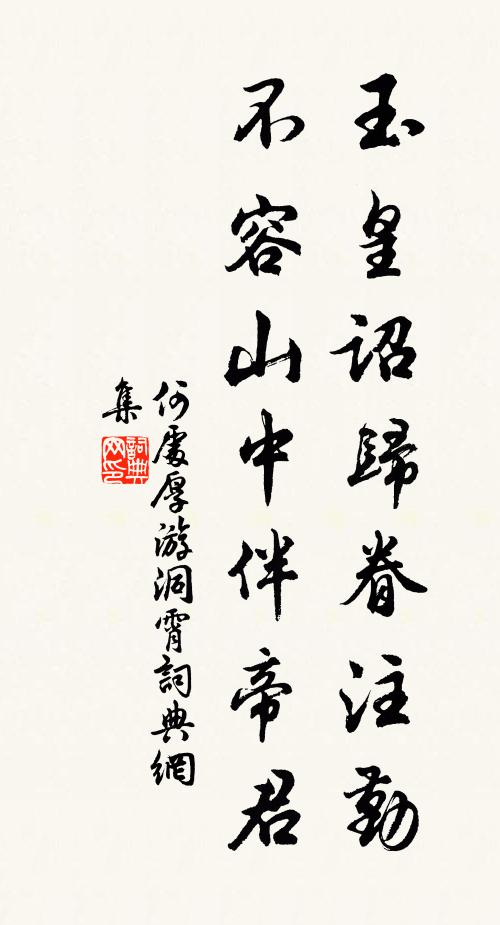 玉皇詔歸眷注勤
不容山中伴帝君
何處厚游洞霄詞典網
集
詞典網印